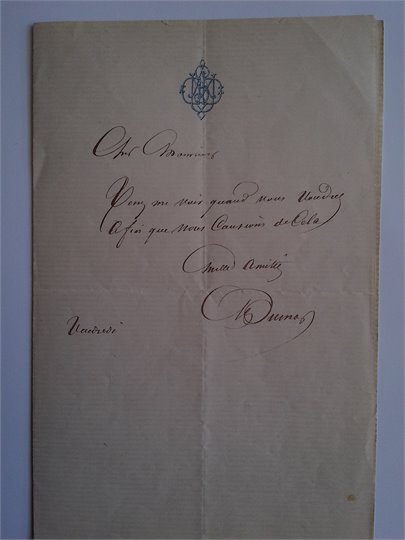 Cher Monsieur
Venez me voir quand vous voudrez
Afin que nous Causions de Cela
Mille Amitiés
Dumas
Vendredi